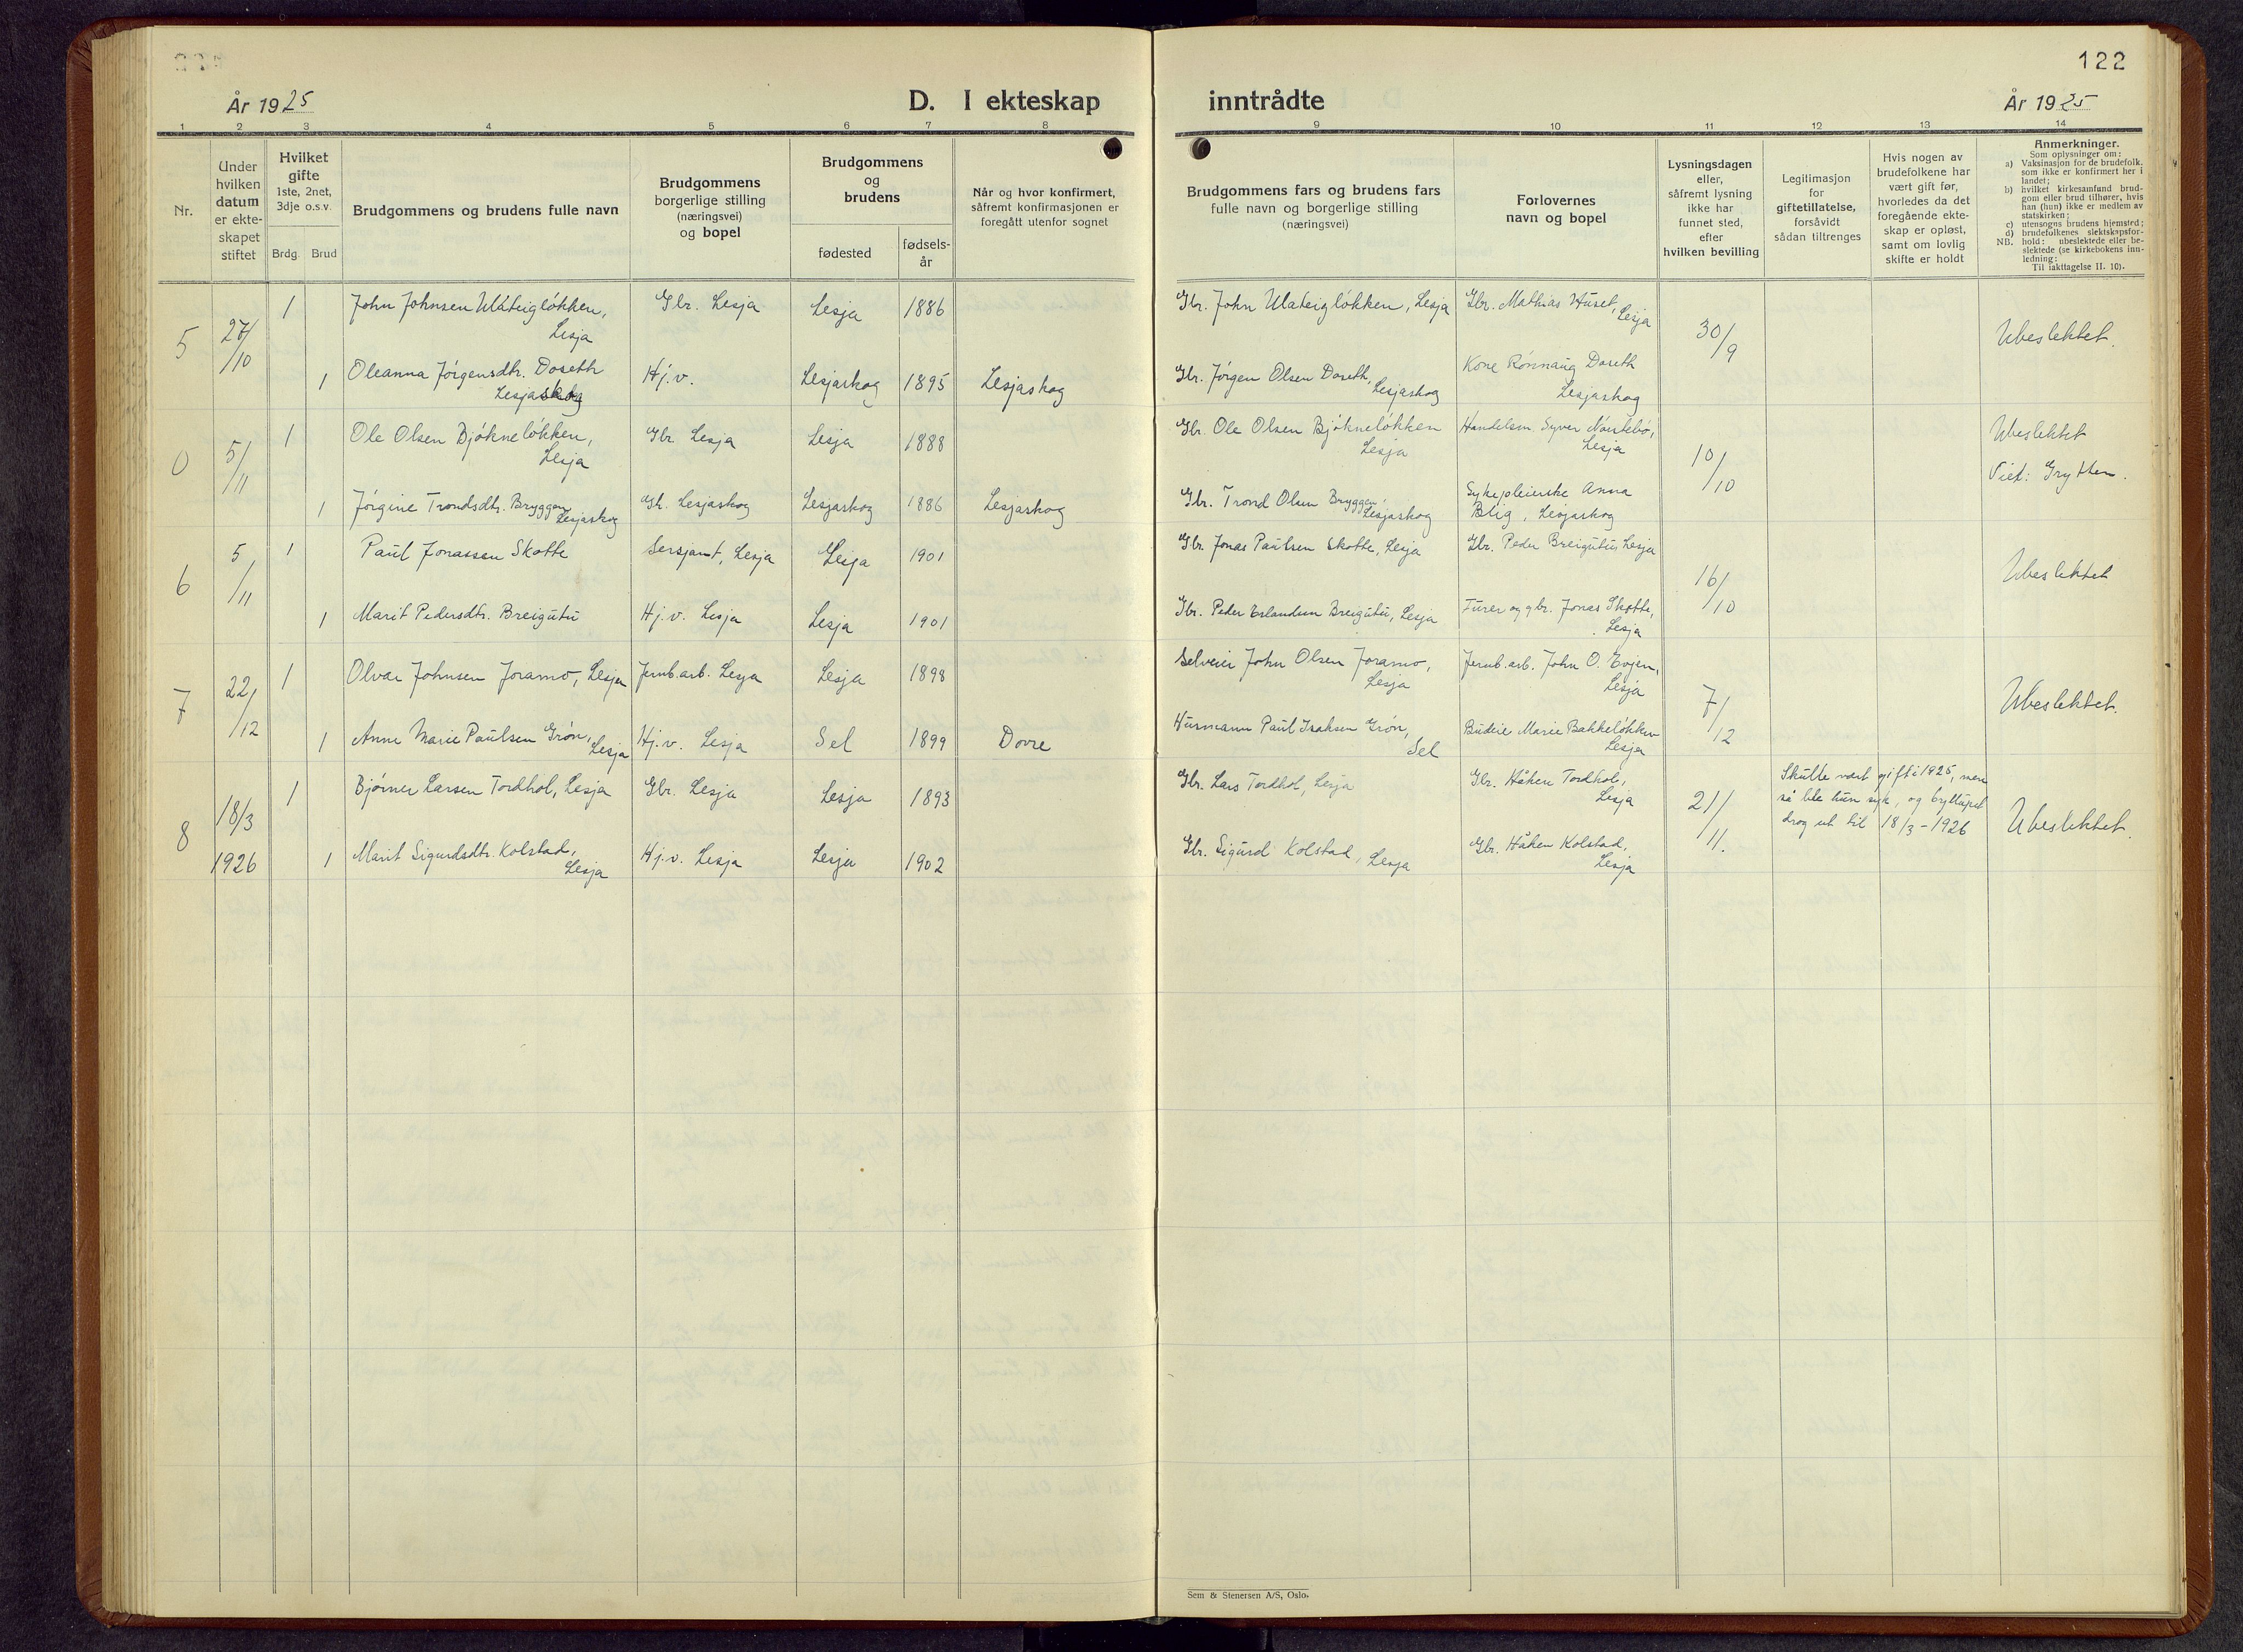 122
År 1925
D. I ekteskap
inntrådte
År 1925
1 2 3 4 5 6 7 8 9 10 11 12 13 14
Nr.
Under
hvilken
datum
er ekte-
skapet
stiftet
Hvilket
gifte
1ste, 2net,
3dje o.s.v.
Brdg. Brud
Brudgommens og brudens fulle navn
Brudgommens
borgerlige stilling
(næringsvei)
og bopel
Brudgommens
og
brudens
fødested
fødsels-
år
Når og hvor konfirmert,
såfremt konfirmasjonen er
foregått utenfor sognet
Brudgommens fars og brudens fars
fulle navn og borgerlige stilling
(næringsvei)
Forlovernes
navn og bopel
Lysningsdagen
eller,
såfremt lysning
ikke har
funnet sted,
efter
hvilken bevilling
Legitimasjon
for
giftetillatelse,
forsåvidt
sådan tiltrenges
Hvis nogen av
brudefolkene har
vært gift før,
hvorledes da det
foregående ekte-
skap er opløst,
samt om lovlig
skifte er holdt
Anmerkninger.
Som oplysninger om:
a) Vaksinasjon for de brudefolk,
som ikke er konfirmert her i
landet;
b) hvilket kirkesamfund brud-
gom eller brud tilhører, hvis
han (hun) ikke er medlem av
statskirken;
c) utensogns brudens hjemsted;
d) brudefolkenes slektskapsfor-
NB. hold: ubeslektede eller be-
slektede (se kirkebokens inn-
ledning:
Til iakttagelse II. 10).
5 27/10
1 John Johnsen Ulateigløkken,
Lesja
Gbr. Lesja Lesja 1886
Gbr. John Ulateigløkken, Lesja
Gbr. Mathias Huset,
Lesja
30/9
Ubeslektet.
1 Oleanna Jørgensdtr. Doseth
Lesjaskog
Hj.v. Lesjaskog 1895 Lesjaskog
Gbr. Jørgen Olsen Doseth,
Lesjaskog
Kone Rønnaug Doseth
Lesjaskog
0 5/11
1 Ole Olsen Bjøkneløkken,
Lesja
Gbr. Lesja Lesja 1888
Gbr. Ole Olsen Bjøkneløkken
Lesja
Handelsm. Syver Nørstebø,
Lesja
10/10
Ubeslektet
Viet: Grytten.
1 Jørgine Trondsdtr. Bryggen,
Lesjaskog
Gbr. Lesjaskog Lesjaskog 1886 Lesjaskog
Gbr. Trond Olsen Bryggen,
Lesjaskog
Sykepleierske Anna
Blig, Lesjaskog
6 5/11
1 Paul Jonassen Skotte
Sersjant, Lesja Lesja 1901
Gbr. Jonas Paulsen Skotte, Lesja
Gbr. Peder Breigutu Lesja
16/10
Ubeslektet
1 Marit Pedersdtr. Breigutu
Hj.v. Lesja Lesja 1901
Gbr. Peder Erlandsen Breigutu, Lesja
Furer og gbr. Jonas Skotte,
Lesja
7 22/12
1 Olvar Johnsen Joramo, Lesja
Jernb.arb. Lesja Lesja 1898
Selveier John Olsen Joramo,
Lesja
Jernb.arb. John O. Evjen,
Lesja
7/12
Ubeslektet.
1 Anne Marie Paulsen Grøn,
Lesja
Hj.v. Lesja Sel 1899 Dovre
Husmann Paul Isaksen Grøn,
Sel
Budeie Marie Bakkeløkken
Lesja
8 18/3
1926
1 Bjørner Larsen Tordhol, Lesja
Gbr. Lesja Lesja 1893
Gbr. Lars Tordhol, Lesja
Gbr. Håken Tordhol,
Lesja
21/11.
Skulle vært gift i 1925, men
så ble hun syk, og bryllupet
drog ut til 18/3-1926
Ubeslektet.
1 Marit Sigurdsdtr. Kolstad,
Lesja
Hj.v. Lesja Lesja 1902
Gbr. Sigurd Kolstad, Lesja
Gbr. Håken Kolstad,
Lesja
Sem & Stenersen A/S, Oslo.